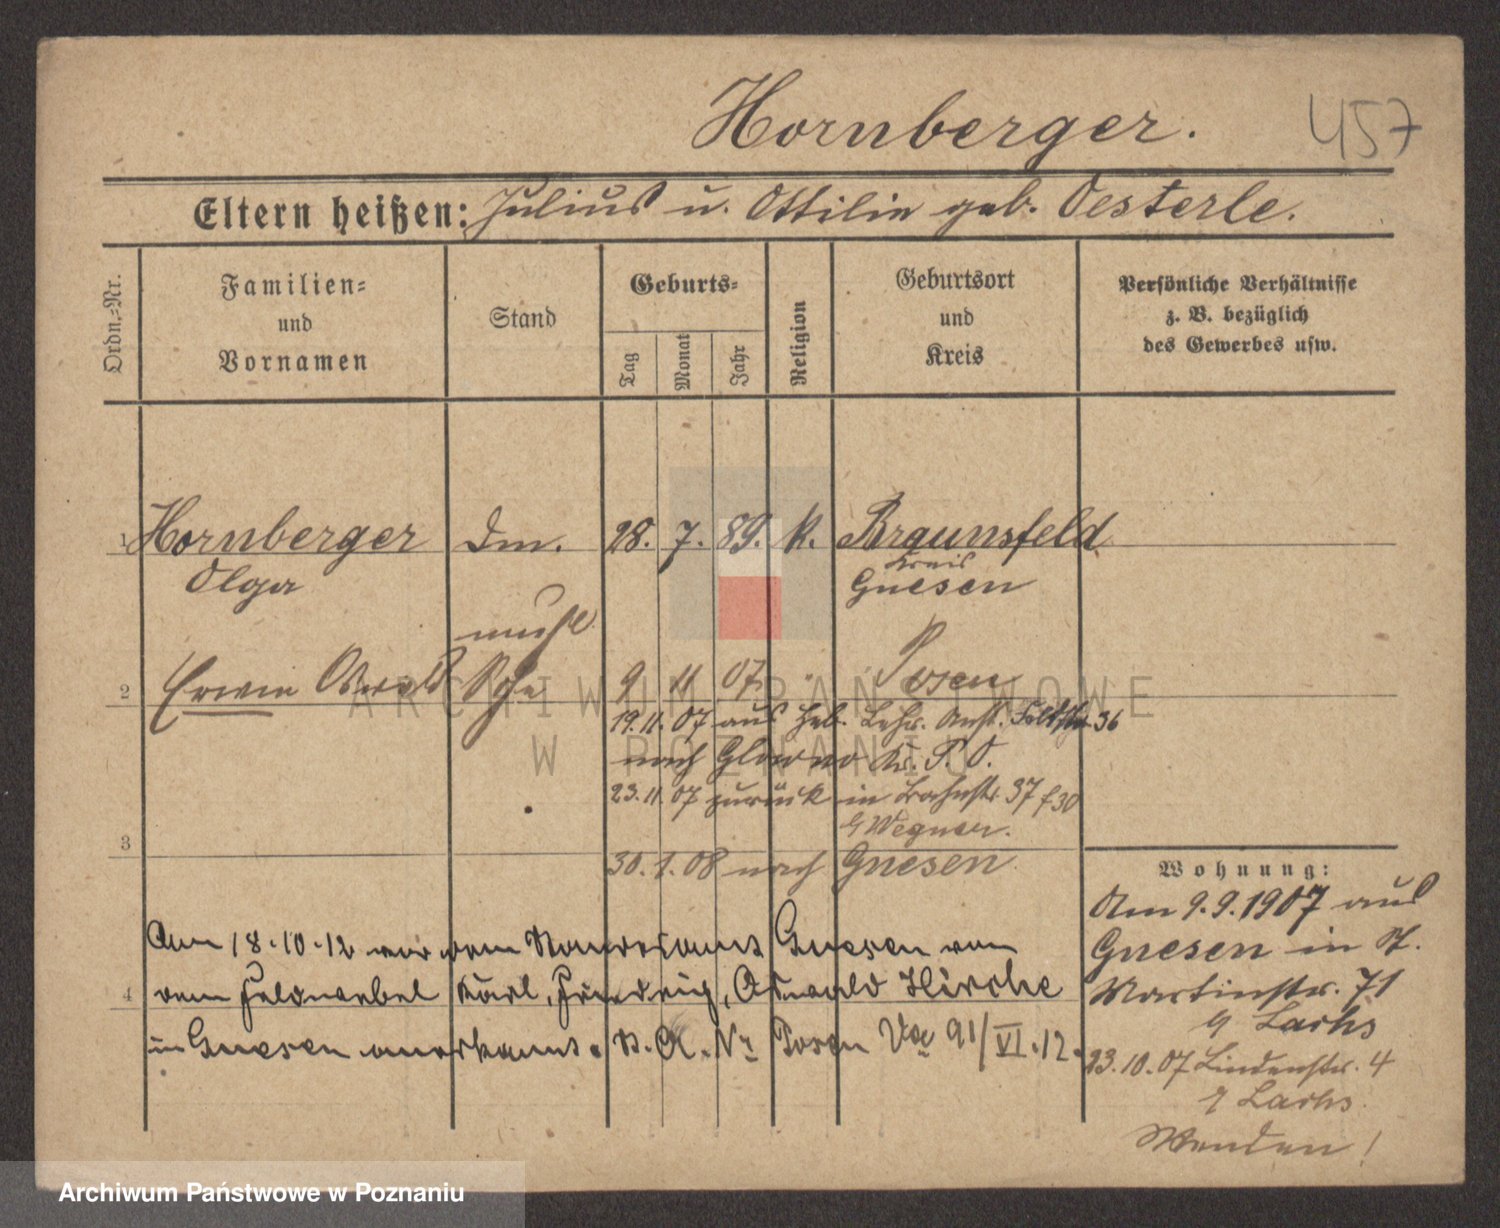 Hornberger.
457
Eltern heißen: Julius u. Ottilie geb. Oesterle.
Ordn.-Nr.
Familien-
und
Vornamen
Stand
Geburts-
Tag
Monat
Jahr
Religion
Geburtsort
und
Kreis
Persönliche Verhältnisse
z. B. bezüglich
des Gewerbes usw.
1 Hornberger Dm. 28. 7. 89. K. Braunsfeld
Kreis
Olga Gnesen
unehl.
2 Erwin Oswald Sohn 9 11 07. " Posen
19.11.07 aus Heb. Lehr. Anst. 36
nach Glowno Kr. P. O.
23.11.07 zurück in Bahnstr. 37 f 30
b/ Wegner.
3
30. 1. 08 nach Gnesen
Am 18.10.12 vor dem Standesamt Gnesen von
4 dem Feldwebel Karl, Friedrich, Oswald Hirche
in Gnesen anerkannt. St. A. Nr Posen 91/VI.12.
Wohnung:
Am 9.9.1907 aus
Gnesen in St.
Martinstr. 71
b/ Lachs
23.10.07 Lindenstr. 4
b/ Lachs
Wenden!
ARCHIWUM PAŃSTWOWE
W POZNANIU
Archiwum Państwowe w Poznaniu